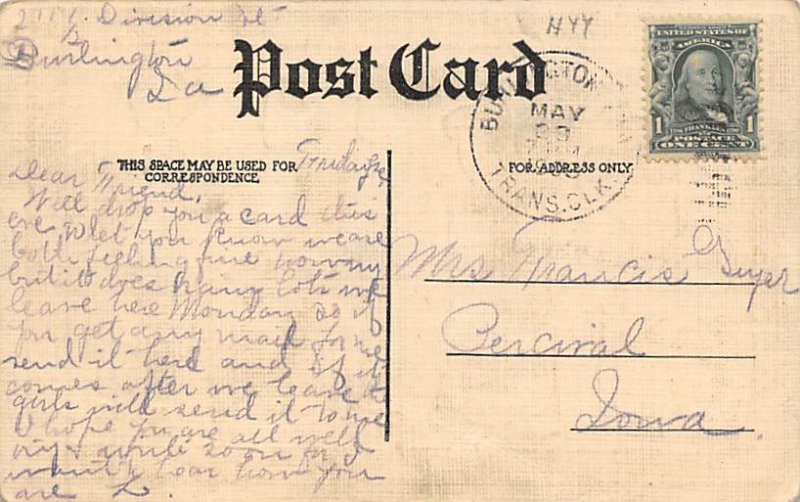 Division St
Burlington
Ia
Post Card
THIS SPACE MAY BE USED FOR
CORRESPONDENCE
FOR ADDRESS ONLY
BURLINGTON
MAY
23
TRANS. CLK.
UNITED STATES OF
AMERICA
1 FRANKLIN 1
POSTAGE
ONE CENT
Friday
Dear Friend,
Will drop you a card this
eve. & let you know we are
both feeling fine now my
but it does rain lots we
leave here Monday so if
you get any mail for me
send it here and if it
comes after we leave
girls will send it to me
hope you are all well
write soon
want hear how you
are L
Mrs Francis Guyer
Percival
Iowa